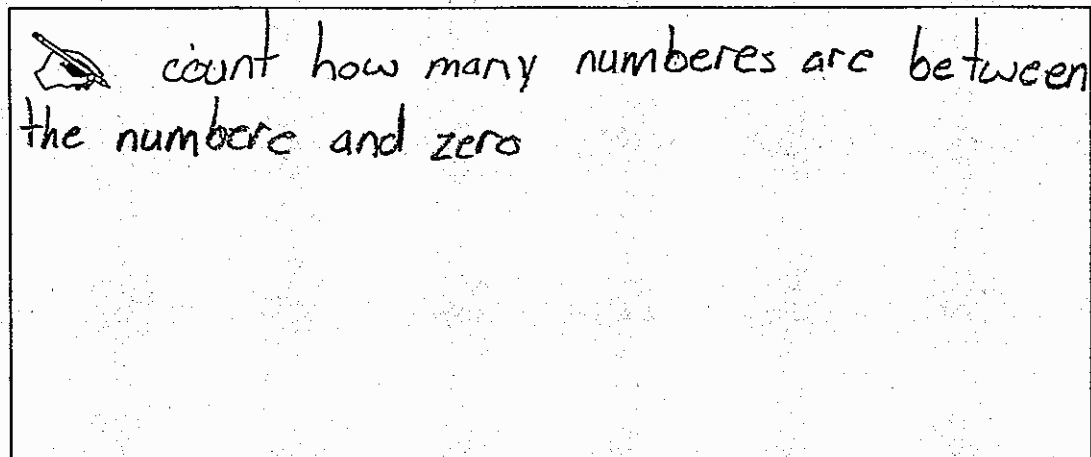 count how many numberes are between
the numbere and zero